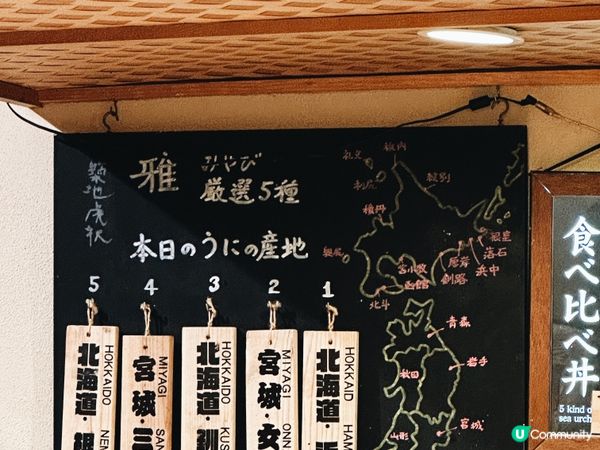 築地虎杁
雅
みやび
厳選5種
本日のうにの産地
5
4
3
2
1
北海道・根
HOKKAIDO
NEM
宮城・三
MIYAGI
SAN
北海道・釧
HOKKAIDO
KUS
宮城・女
MIYAGI
ONN
北海道・浜
HOKKAID
HAM
稚内
礼文
利尻
枝別
積丹
奥尻
根室
落石
浜中
厚岸
釧路
苫小牧
函館
北斗
青森
岩手
秋田
宮城
山形
食べ比べ丼
5 kind o
sea urch
U Community